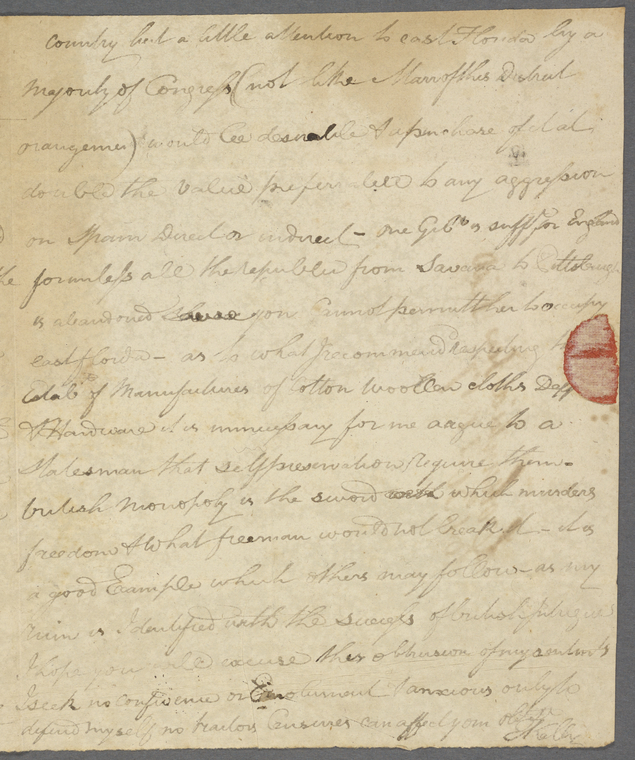 Country but a little attention to east Florida by a
Majority of Congress (not like Marr of this District
orangemen) would be desirable & a purchase of it at
double the value preferable to any aggression
on Spain Direct or indirect - one Gibr is suff for England
formless all the republic from Savana to
is abandoned you Cannot permitt her to occupy
east florida - as to what I recommend respecting the
Estabt of Manufactures of Cotton woollen cloths
& Hardware it is unnecessary for me argue to a
Statesman that self preservation Require them -
british Monopoly is the sword which murders
freedom & what freeman would not break it - it is
a good Example which others may follow - as my
ruin is Identified with the success of british Intrigues
I hope you will excuse this obtrusion of my sentiments
I seek no confidence or Emolument & anxious only to
defend myself no traitors Censures can affect your